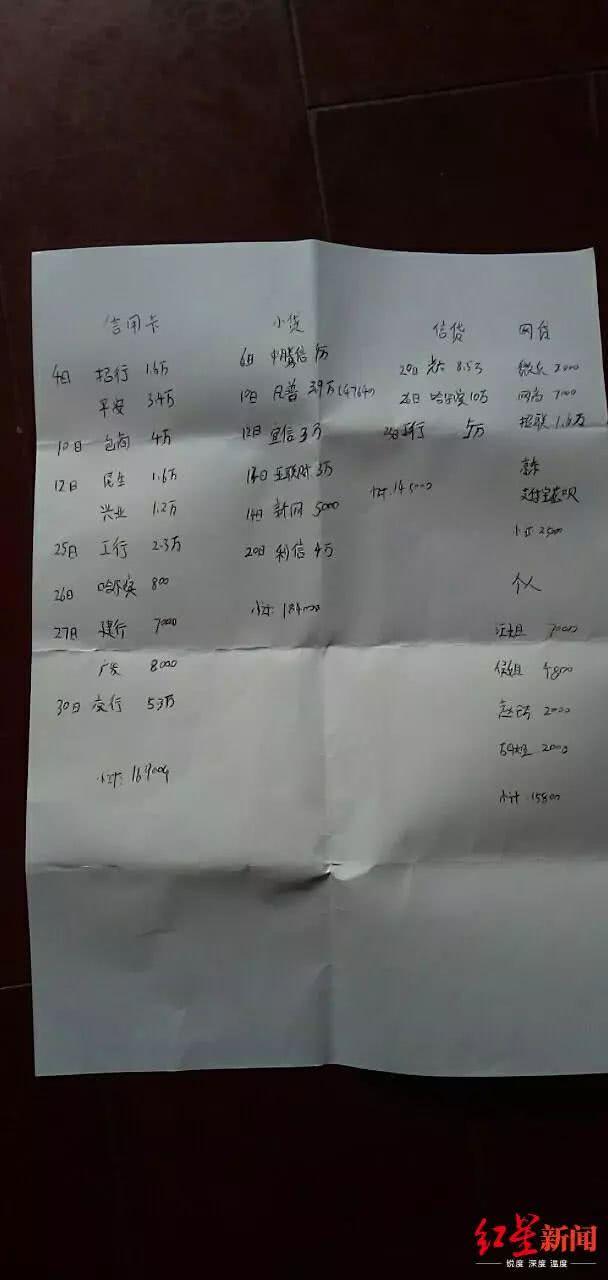 信用卡
4日 招行 1.6万
平安 3.4万
10日 包商 4万
12日 民生 1.6万
兴业 1.2万
25日 工行 2.3万
26日 哈尔滨 800
27日 建行 7000
广发 8000
30日 交行 5.3万
小计: 169000
小贷
6日 中腾信
10日 凡普 3.9万 (4764)
12日 宜信 3万
14日 互联时 3万
14日 新网 5000
20日 利信 4万
小计: 184000
信贷
20日 光大 8.5万
26日 哈尔滨 10万
工行 5万
小计 145000
网贷
微众
网商 7000
招联 1.6万
京东
支付宝花呗
小计 25000
个人
汪姐 7000
侯姐 4800
2000
胡姐 2000
小计 15800
红星新闻
锐度 深度 温度